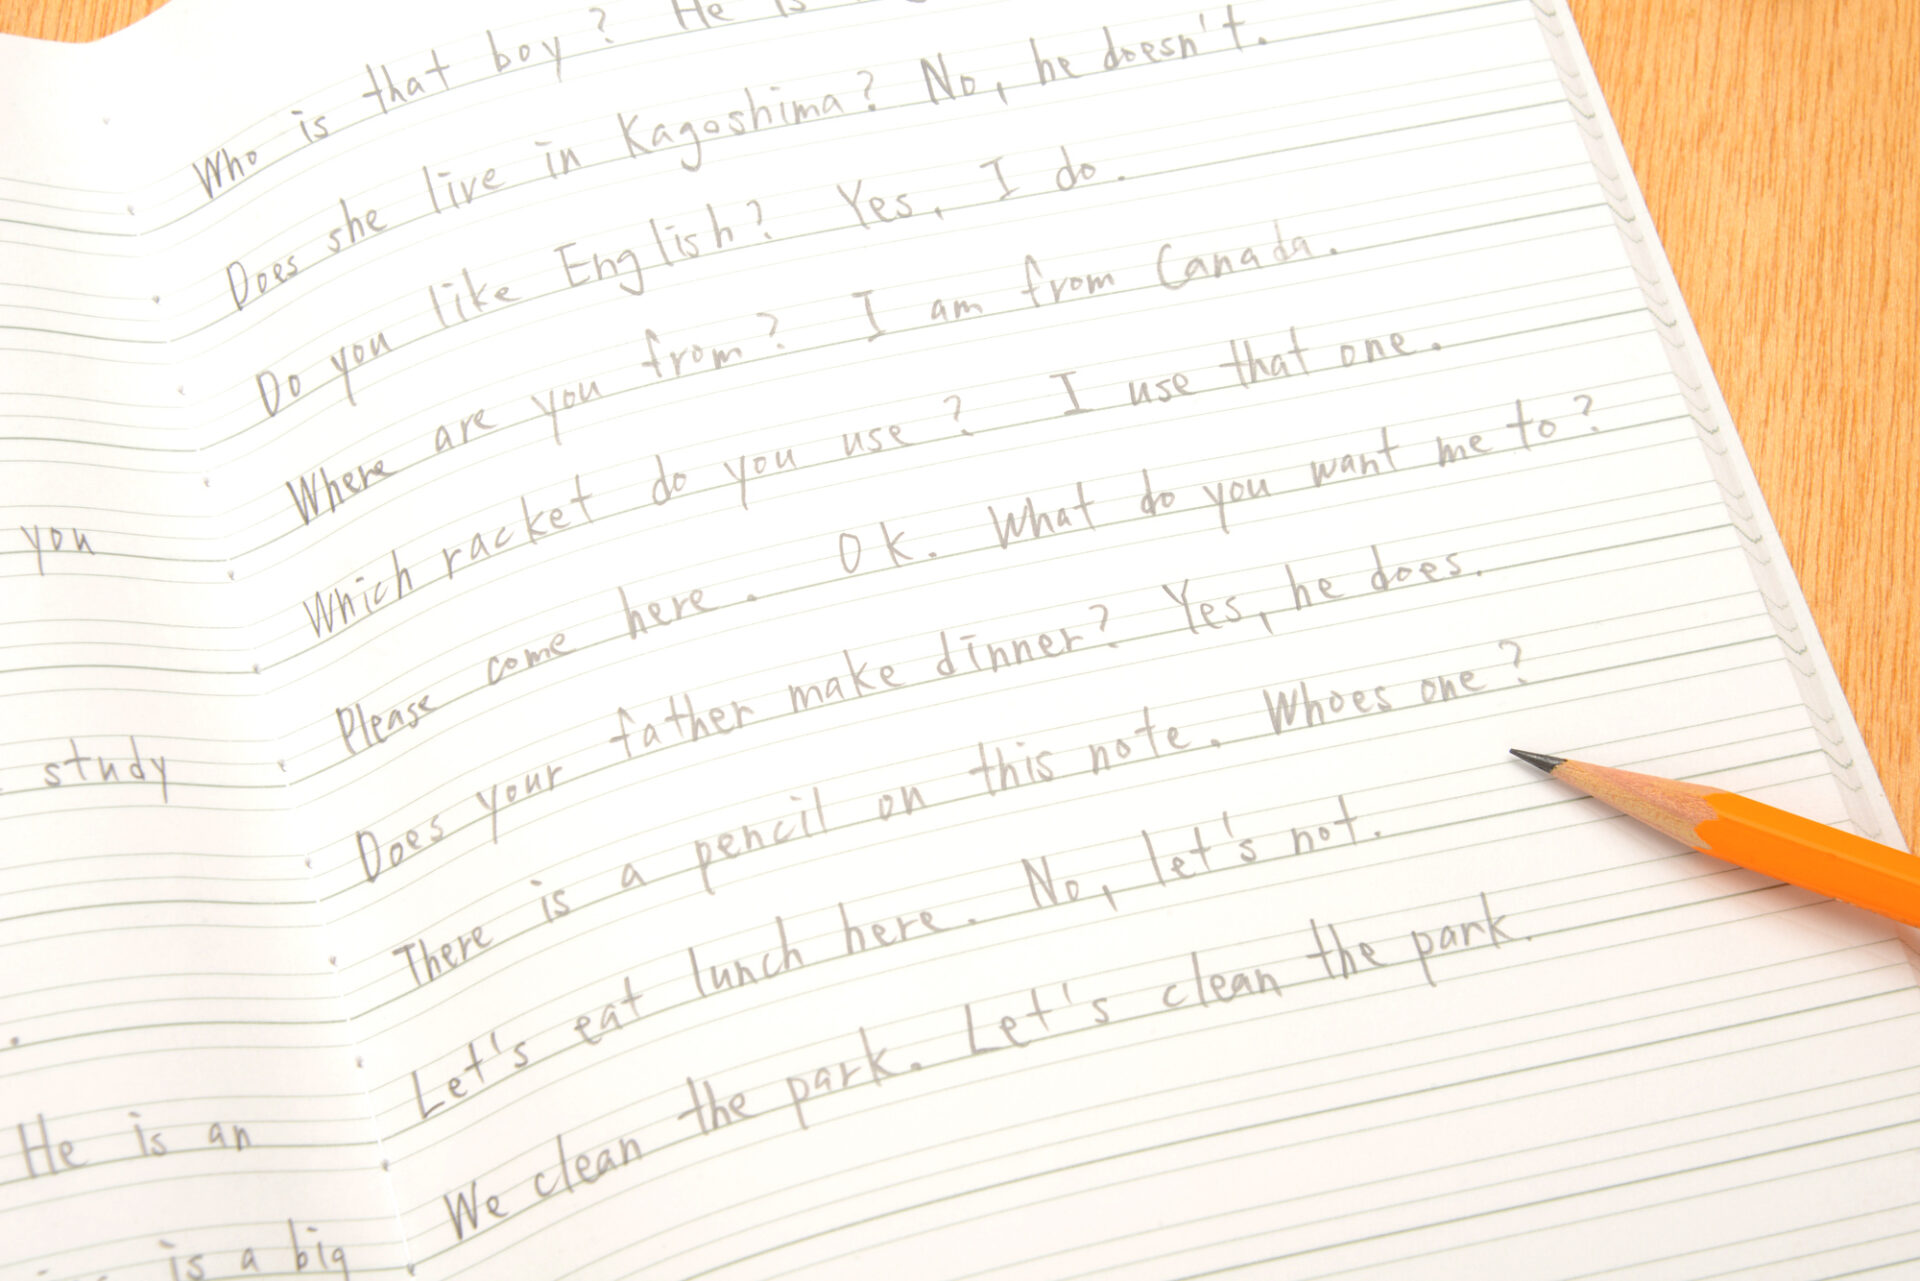 you
study
.
He is an
is a big
Who is that boy? He is
Does she live in Kagoshima? No, he doesn't.
Do you like English? Yes, I do.
Where are you from? I am from Canada.
Which racket do you use? I use that one.
Please come here. Ok. What do you want me to?
Does your father make dinner? Yes, he does.
There is a pencil on this note. Whoes one?
Let's eat lunch here. No, let's not.
We clean the park. Let's clean the park.